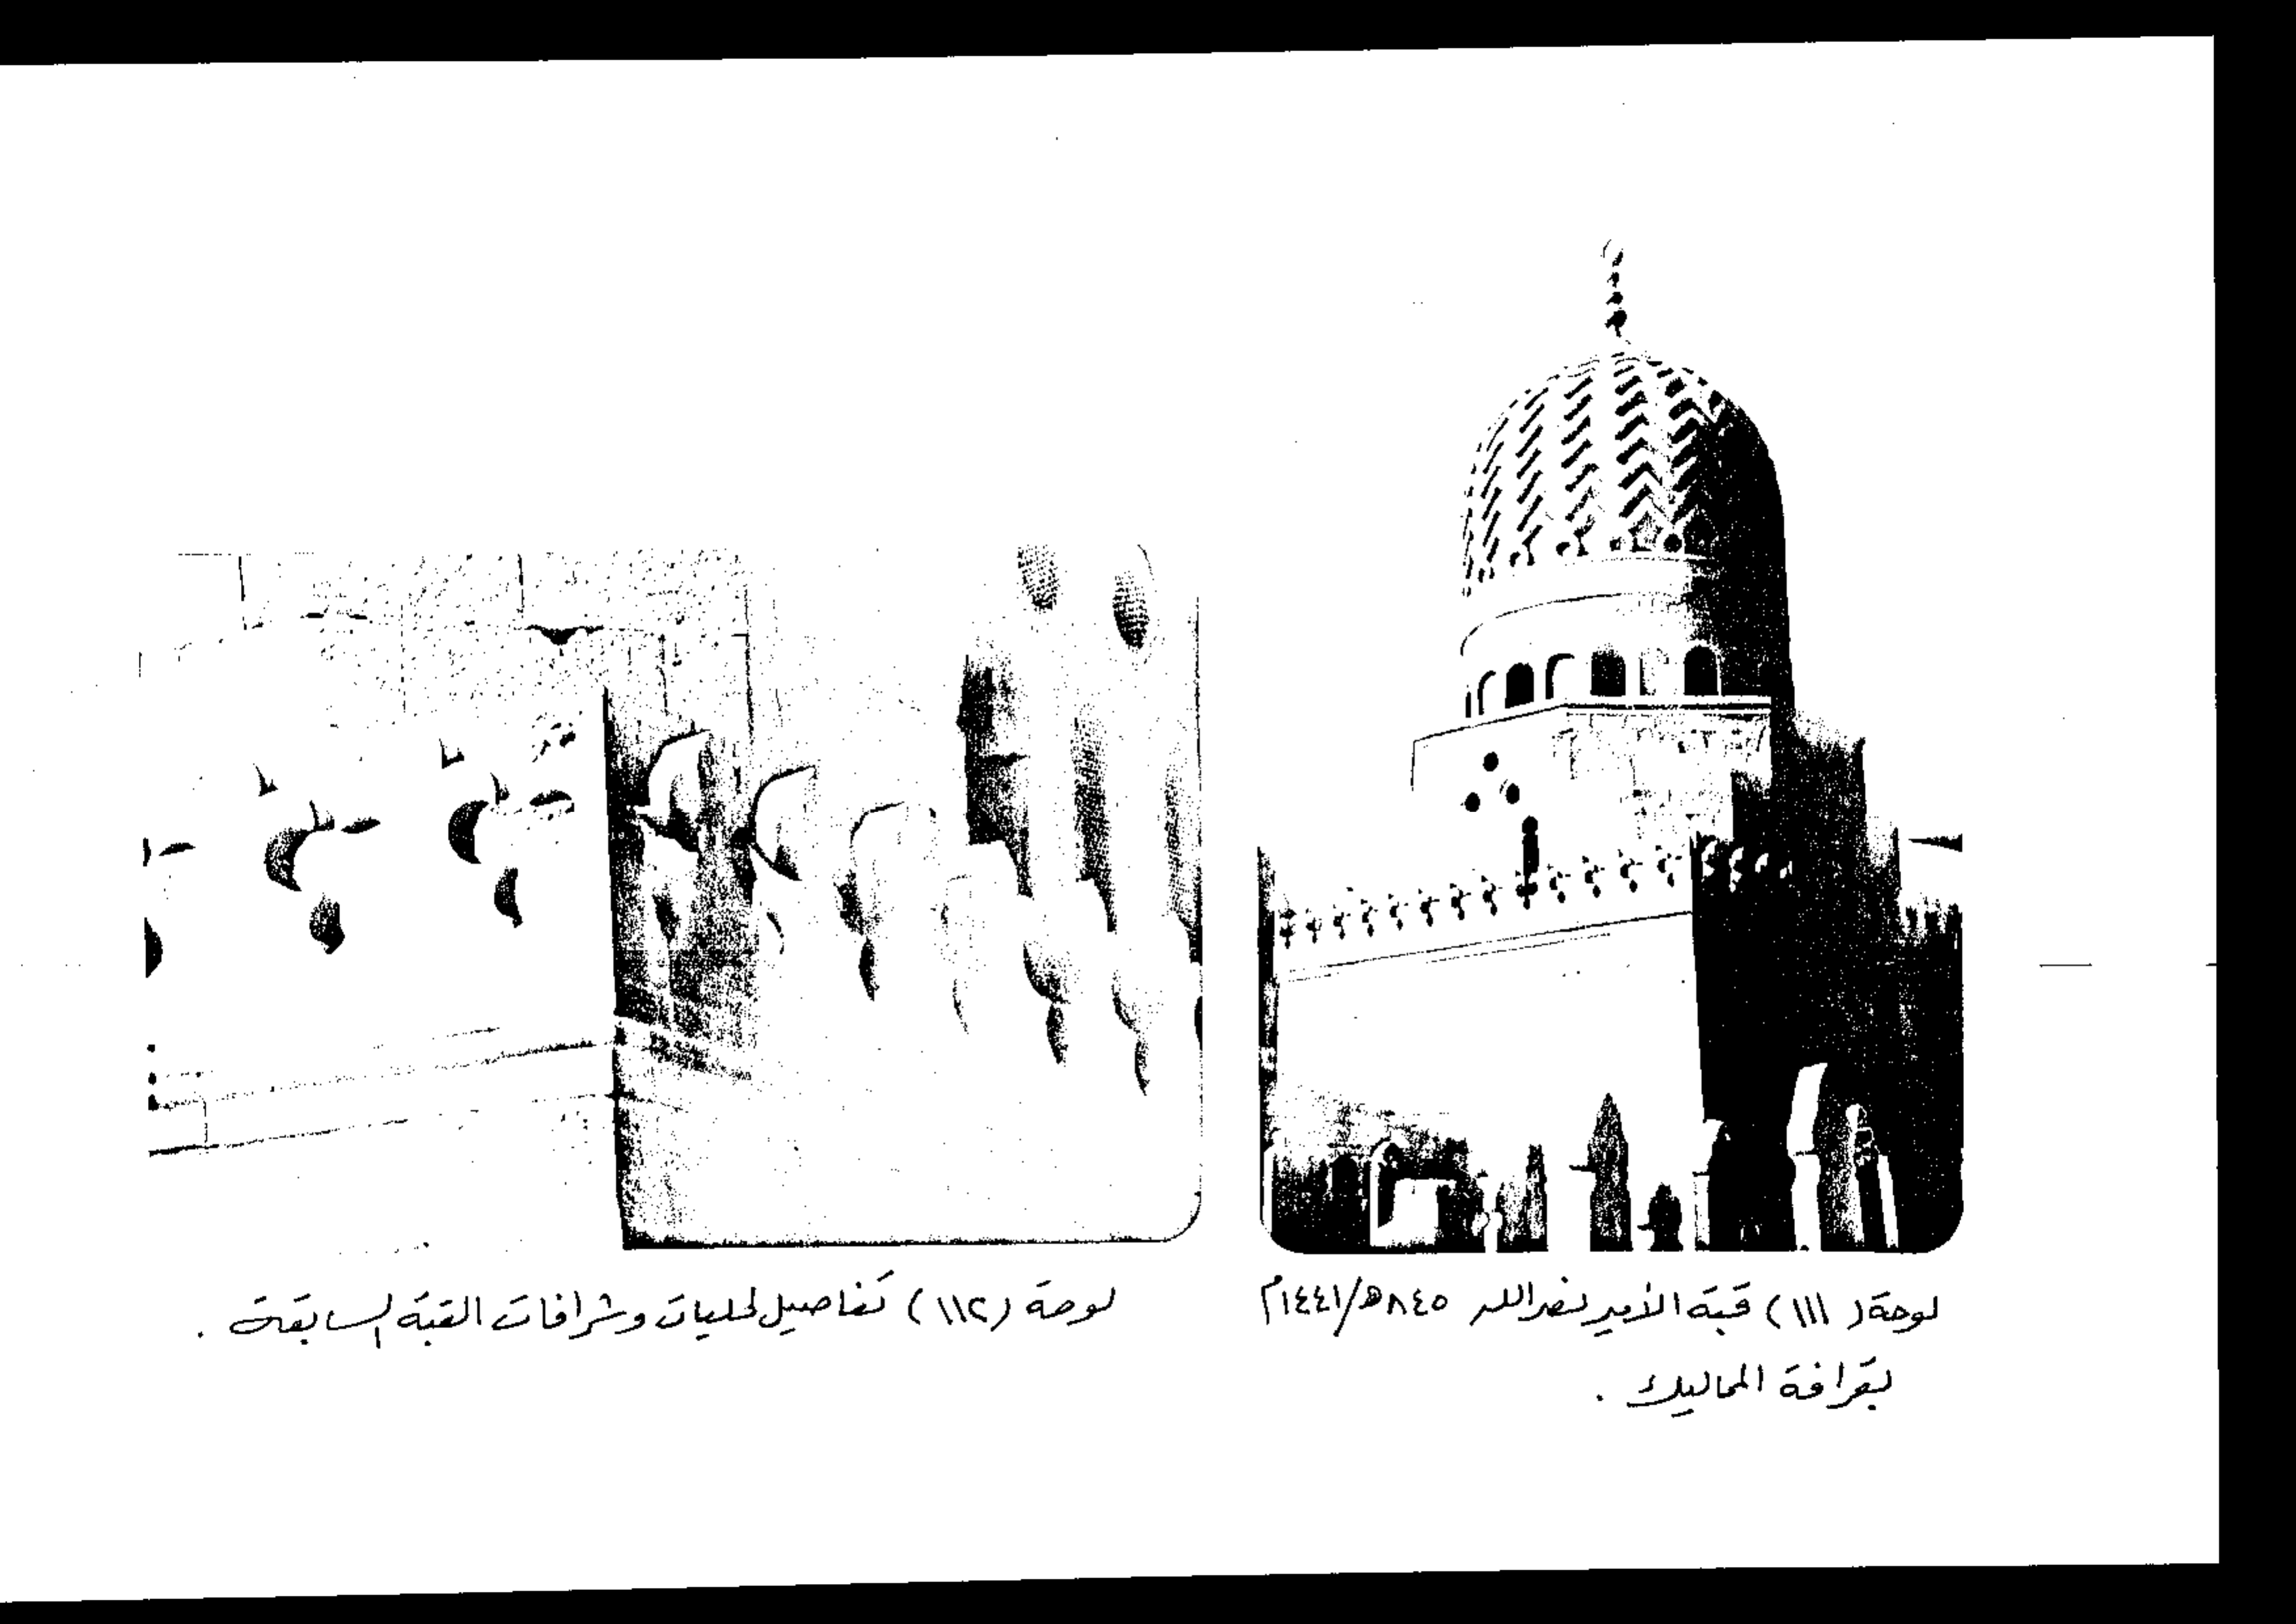 لوحة (١١١) قبة الأمير نصر الله ٨٤٥هـ/١٤٤١م
بقرافة المماليك .
لوحة (١١٢) تفاصيل لحليات وشرافات القبة السابقة .